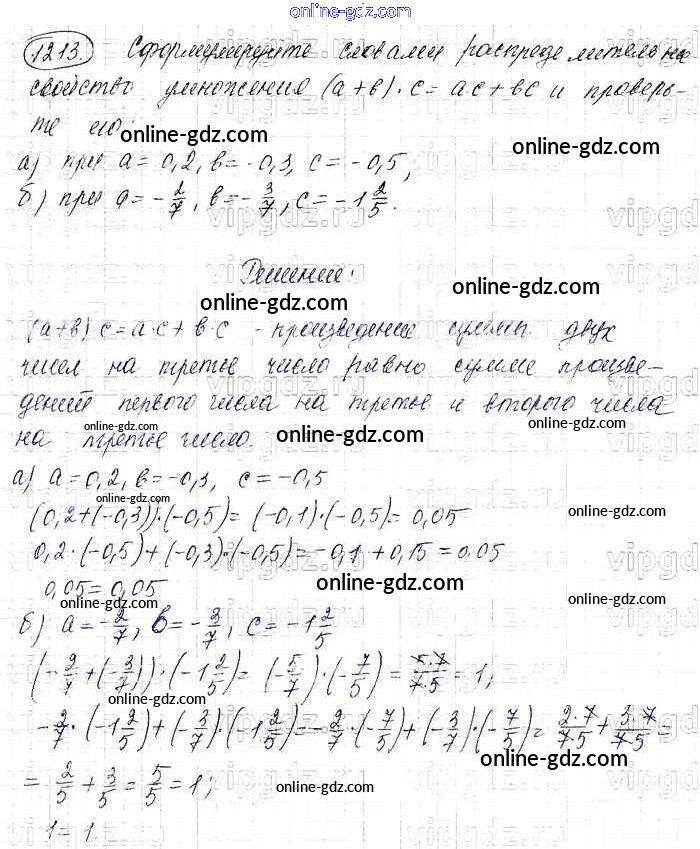 online-gdz.com
1213. Сформулируйте словами распределительное
свойство умножения (a+b)·c=ac+bc и проверь-
те его:
online-gdz.com
online-gdz.com
а) при a=0,2, b=-0,3, c=-0,5,
б) при a=-2/7, b=-3/7, c=-1 2/5.
vipgdz.ru
Решение:
online-gdz.com
online-gdz.com
(a+b) c=a·c+b·c - произведение суммы двух
чисел на третье число равно сумме произве-
дений первого числа на третье и второго числа
на третье число.
online-gdz.com
online-gdz.com
online-gdz.com
а) a=0,2, b=-0,3, c=-0,5
online-gdz.com
(0,2+(-0,3))·(-0,5)=(-0,1)·(-0,5)=0,05
online-gdz.com
0,2·(-0,5)+(-0,3)·(-0,5)=-0,1+0,15=0,05
0,05=0,05
online-gdz.com
online-gdz.com
б) a=-2/7, b=-3/7, c=-1 2/5
(-2/7+(-3/7))·(-1 2/5)=(-5/7)·(-7/5)=5·7/7·5=1;
online-gdz.com
-2/7·(-1 2/5)+(-3/7)·(-1 2/5)=-2/7·(-7/5)+(-3/7)·(-7/5)=2·7/7·5+3·7/7·5=
online-gdz.com
=2/5+3/5=5/5=1;
online-gdz.com
online-gdz.com
1=1.